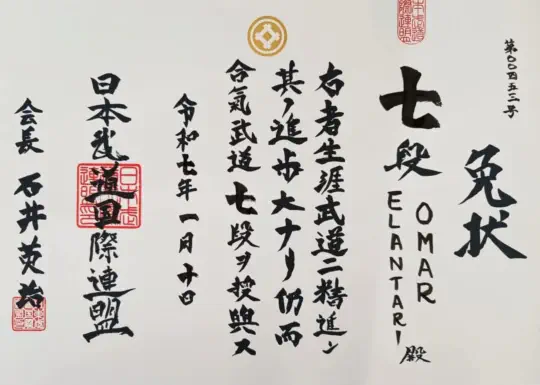 第〇〇四五三号
免状
七段
OMAR
ELANTARI 殿
右者生涯武道ニ精進シ
其ノ進歩大ナリ仍而
合氣武道七段ヲ授與ス
令和七年一月十日
日本武道国際連盟
会長 石井英治